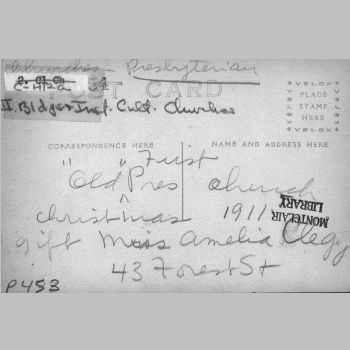 Churches - Presbyterian
2. Cl Ch
C-H12a 54
POST CARD
II. Bldgs & Inst. Cult. Churches
VELOX VELOX
PLACE
STAMP
HERE
VELOX VELOX
CORRESPONDENCE HERE
NAME AND ADDRESS HERE
" " First
"Old Pres church
^
christmas 1911
MONTCLAIR
LIBRARY
gift Miss Amelia Clegg
43 Forest St
P453